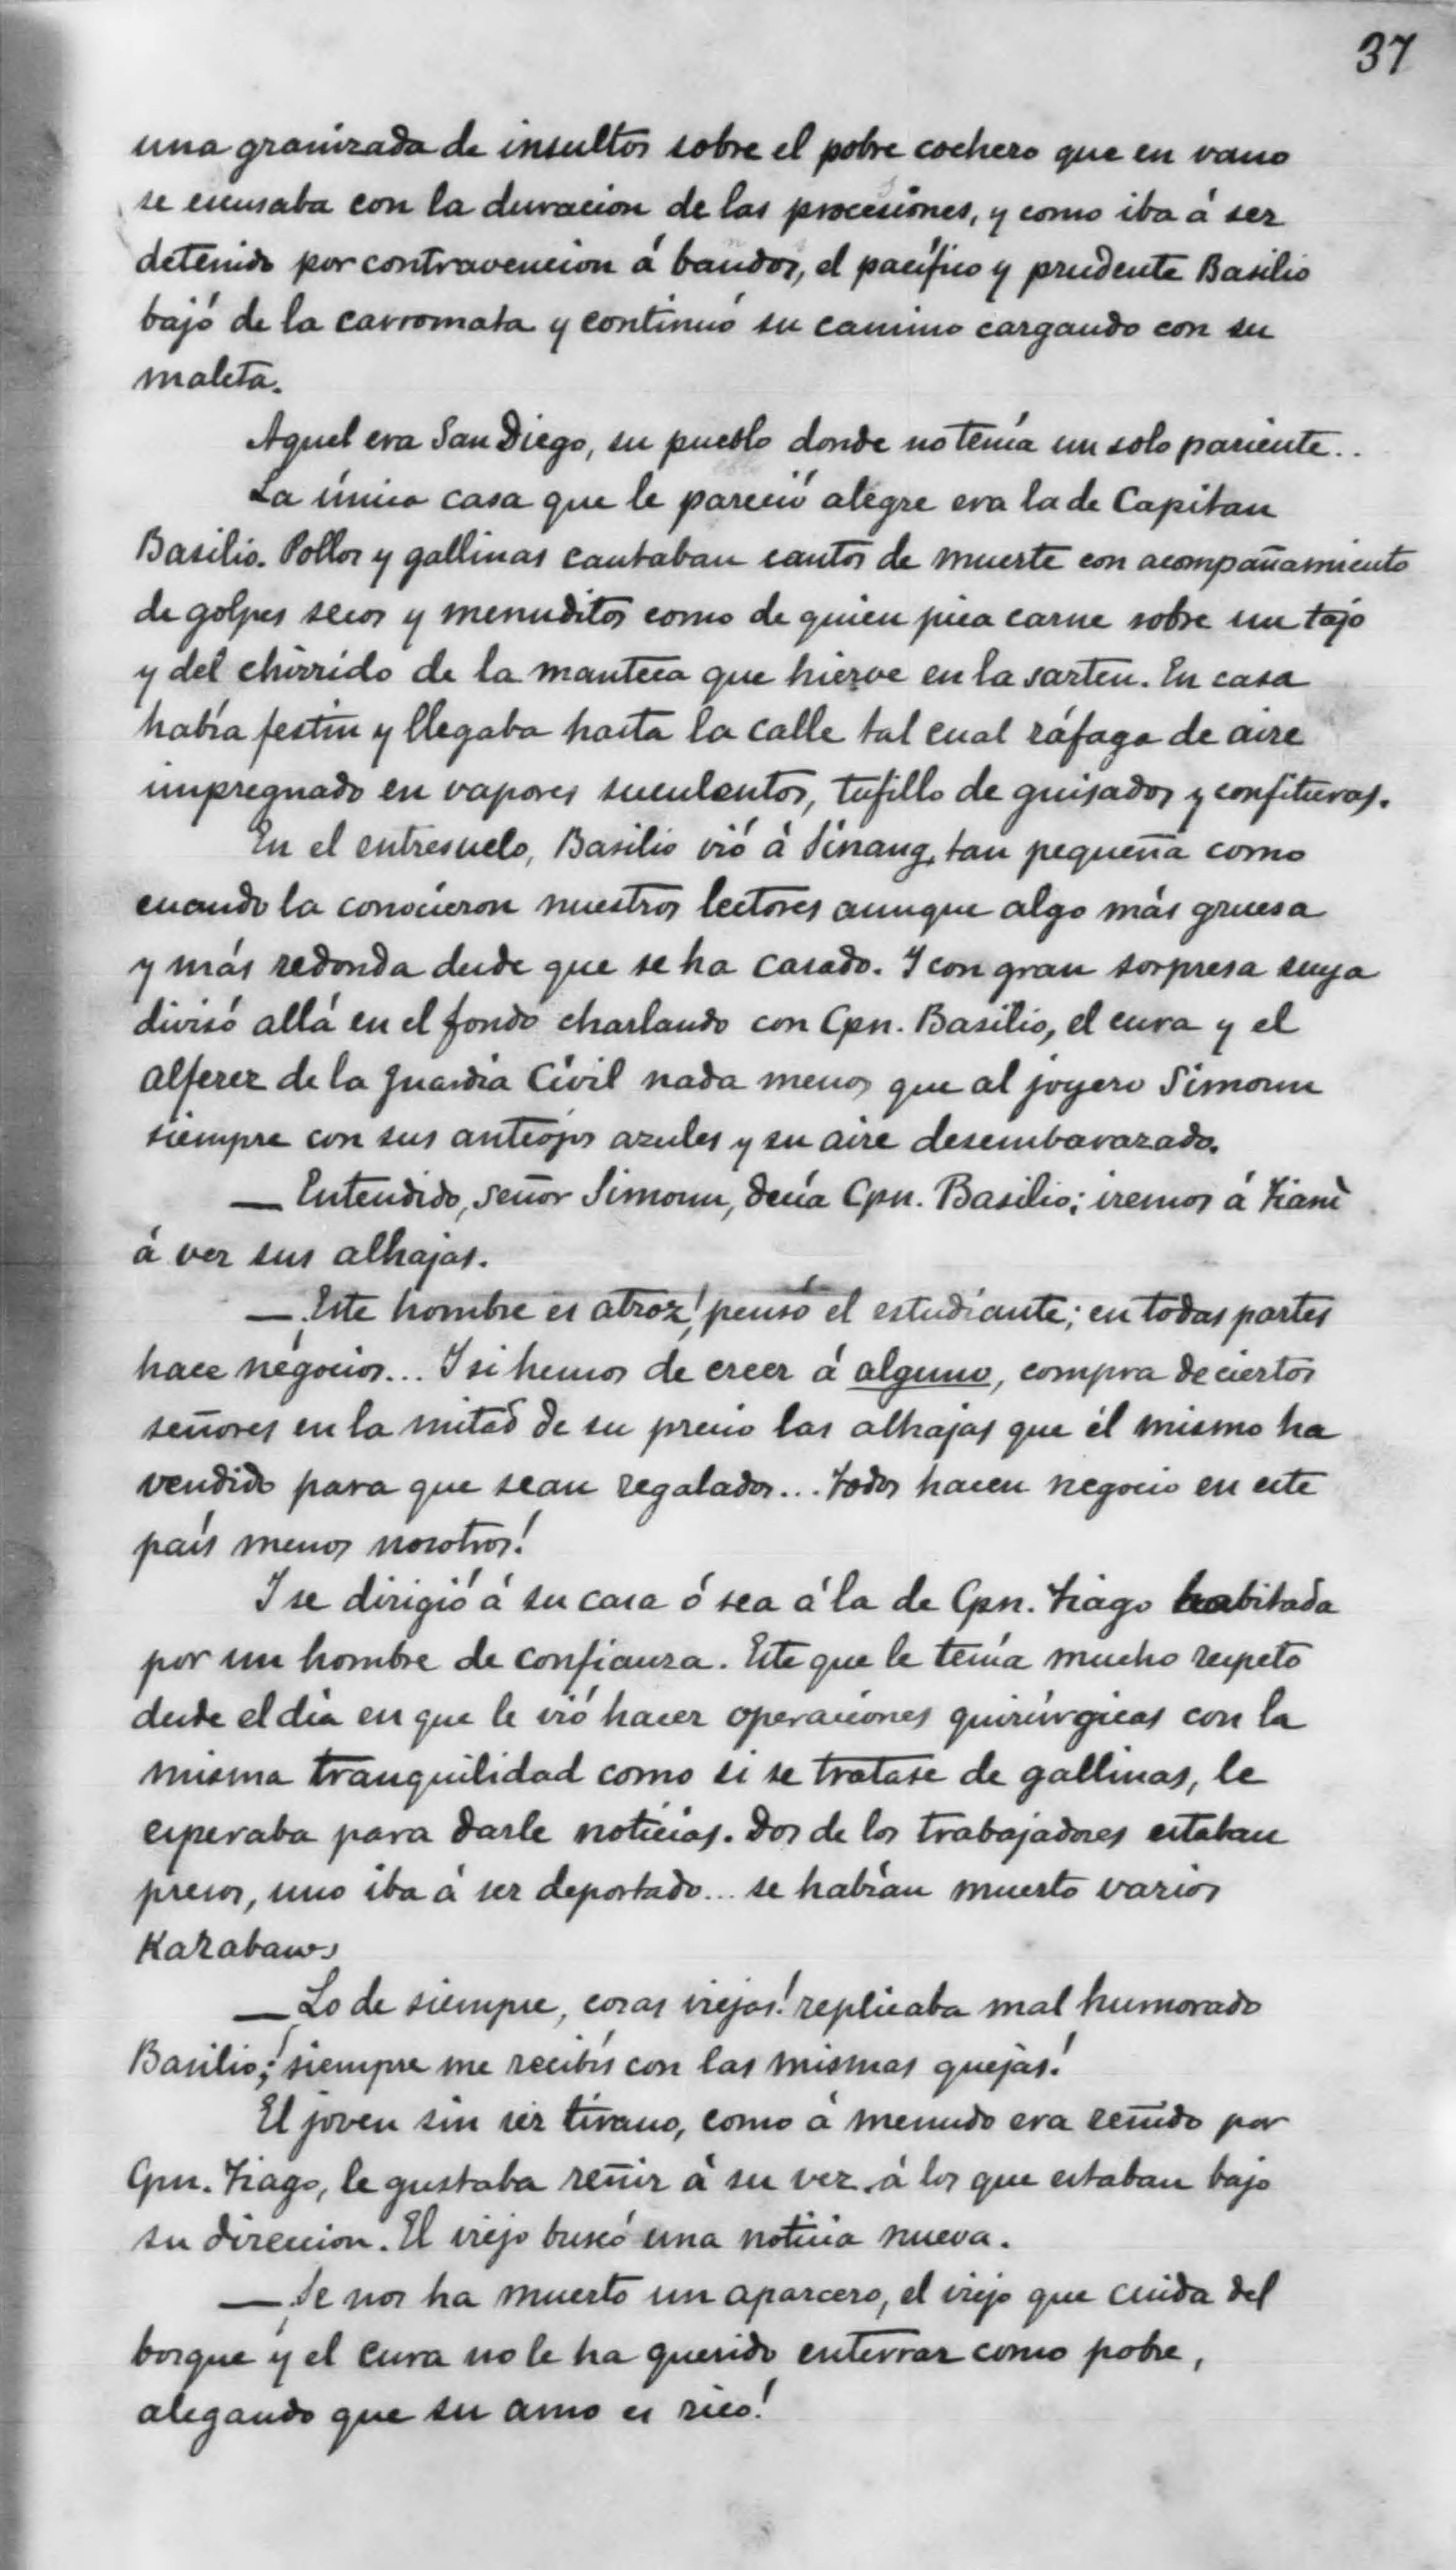 37
una granizada de insultos sobre el pobre cochero que en vano
se escusaba con la duracion de las procesiones, y como iba á ser
detenido por contravencion á bandos, el pacífico y prudente Basilio
bajó de la carromata y continuó su camino cargando con su
maleta.
Aquel era San Diego, su pueblo donde no tenía un solo pariente..
La única casa que le pareció alegre era la de Capitan
Basilio. Pollos y gallinas cantaban cantos de muerte con acompañamiento
de golpes secos y menuditos como de quien pica carne sobre un tajo
y del chirrido de la manteca que hierve en la sarten. En casa
había festin y llegaba hasta la calle tal cual ráfaga de aire
impregnado en vapores suculentos, tufillo de guisados y confituras.
En el entresuelo, Basilio vió á Sinang, tan pequeña como
cuando la conocieron nuestros lectores aunque algo más gruesa
y más redonda desde que se ha casado. Y con gran sorpresa suya
divisó allá en el fondo charlando con Cpn. Basilio, el cura y el
alferez de la Guardia Civil nada menos que al joyero Simoun
siempre con sus anteojos azules y su aire desembarazado.
— Entendido, señor Simoun, decía Cpn. Basilio; iremos á Tianì
á ver sus alhajas.
— ¡Este hombre es atroz! pensó el estudiante; en todas partes
hace negocios... Y si hemos de creer á alguno, compra de ciertos
señores en la mitad de su precio las alhajas que él mismo ha
vendido para que sean regalados... Todos hacen negocio en este
país menos nosotros!
Y se dirigió á su casa ó sea á la de Cpn. Tiago habitada
por un hombre de confianza. Este que le tenía mucho respeto
desde el día en que le vió hacer operaciones quirúrgicas con la
misma tranquilidad como si se tratase de gallinas, le
esperaba para darle noticias. Dos de los trabajadores estaban
presos, uno iba á ser deportado... se habían muerto varios
Karabaws
— Lo de siempre, cosas viejas! replicaba mal humorado
Basilio; ¡siempre me recibís con las mismas quejas!
El joven sin ser tirano, como á menudo era reñido por
Cpn. Tiago, le gustaba reñir á su vez á los que estaban bajo
su direccion. El viejo buscó una noticia nueva.
— ¡Se nos ha muerto un aparcero, el viejo que cuida del
bosque y el cura no le ha querido enterrar como pobre,
alegando que su amo es rico!